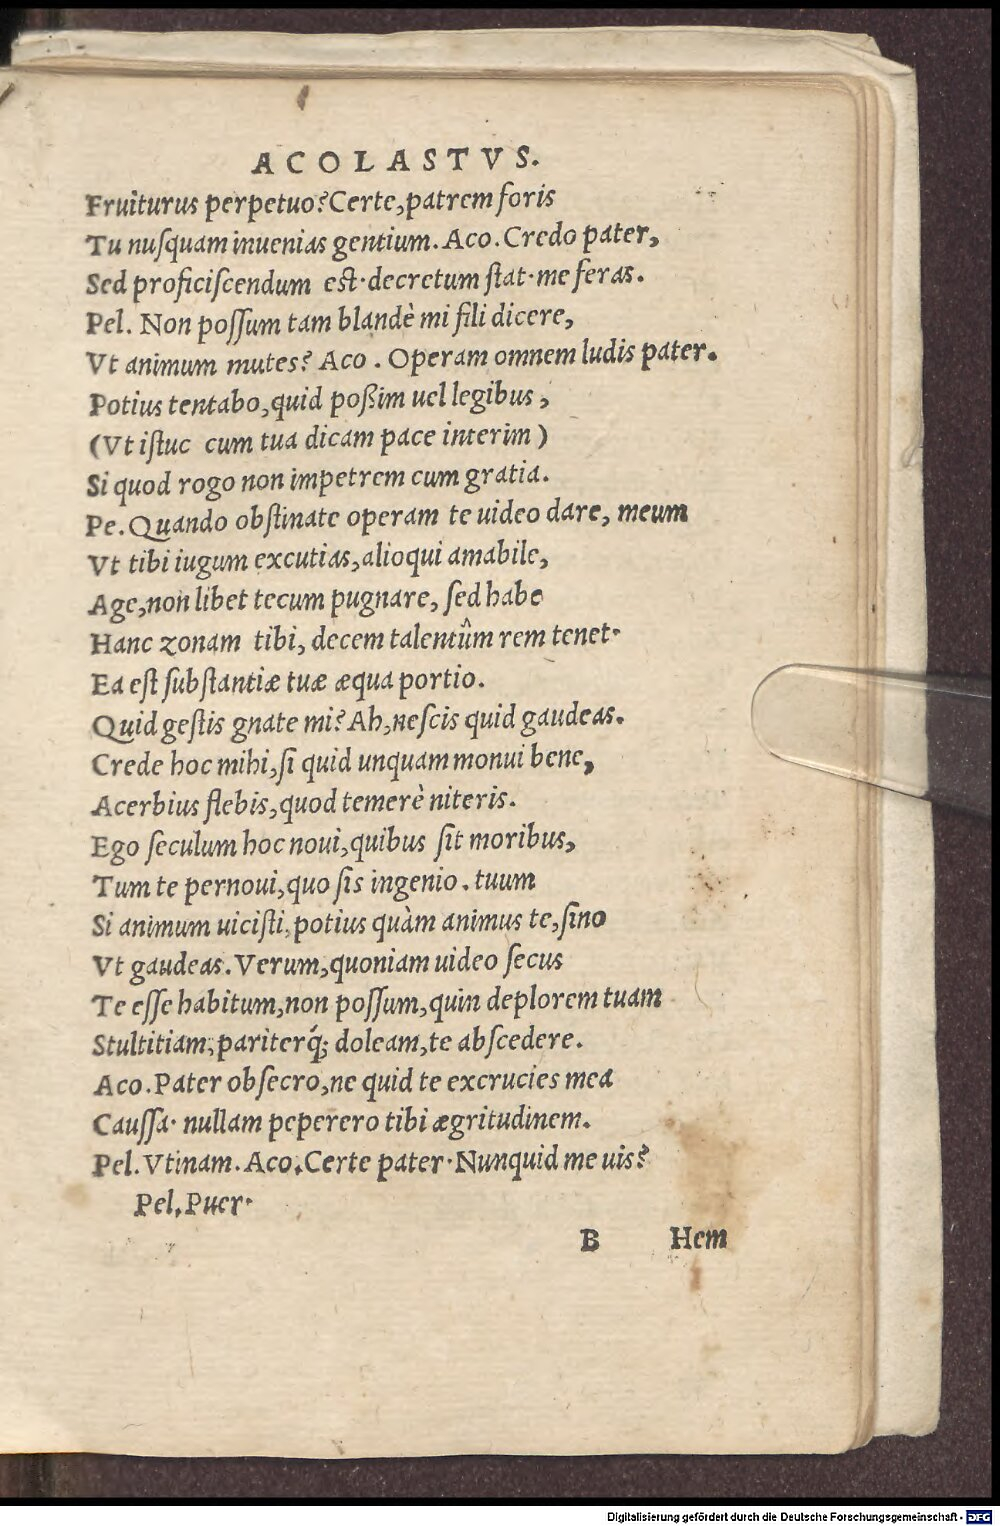 ACOLASTVS.
Fruiturus perpetuo? Certe, patrem foris
Tu nuſquam inuenias gentium. Aco. Credo pater,
Sed proficiſcendum eſt· decretum ſtat· me feras.
Pel. Non poſſum tam blandè mi fili dicere,
Vt animum mutes? Aco. Operam omnem ludis pater.
Potius tentabo, quid poßim uel legibus,
(Vt iſtuc cum tua dicam pace interim)
Si quod rogo non impetrem cum gratia.
Pe. Quando obſtinate operam te uideo dare, meum
Vt tibi iugum excutias, alioqui amabile,
Age, non libet tecum pugnare, ſed habe
Hanc zonam tibi, decem talentûm rem tenet·
Ea eſt ſubſtantiæ tuæ æqua portio.
Quid geſtis gnate mi? Ah, neſcis quid gaudeas.
Crede hoc mihi, ſi quid unquam monui bene,
Acerbius flebis, quod temerè niteris.
Ego ſeculum hoc noui, quibus ſit moribus,
Tum te pernoui, quo ſis ingenio. tuum
Si animum uiciſti, potius quàm animus te, ſino
Vt gaudeas. Verum, quoniam uideo ſecus
Te eſſe habitum, non poſſum, quin deplorem tuam
Stultitiam, pariterq́; doleam, te abſcedere.
Aco. Pater obſecro, ne quid te excrucies mea
Cauſſa· nullam peperero tibi ægritudinem.
Pel. Vtinam. Aco. Certe pater· Nunquid me uis?
Pel. Puer·
B Hem
Digitalisierung gefördert durch die Deutsche Forschungsgemeinschaft - DFG